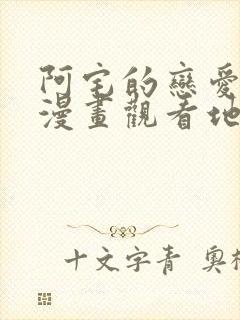 阿宅的戀愛
漫畫觀看地
十文字青 奧